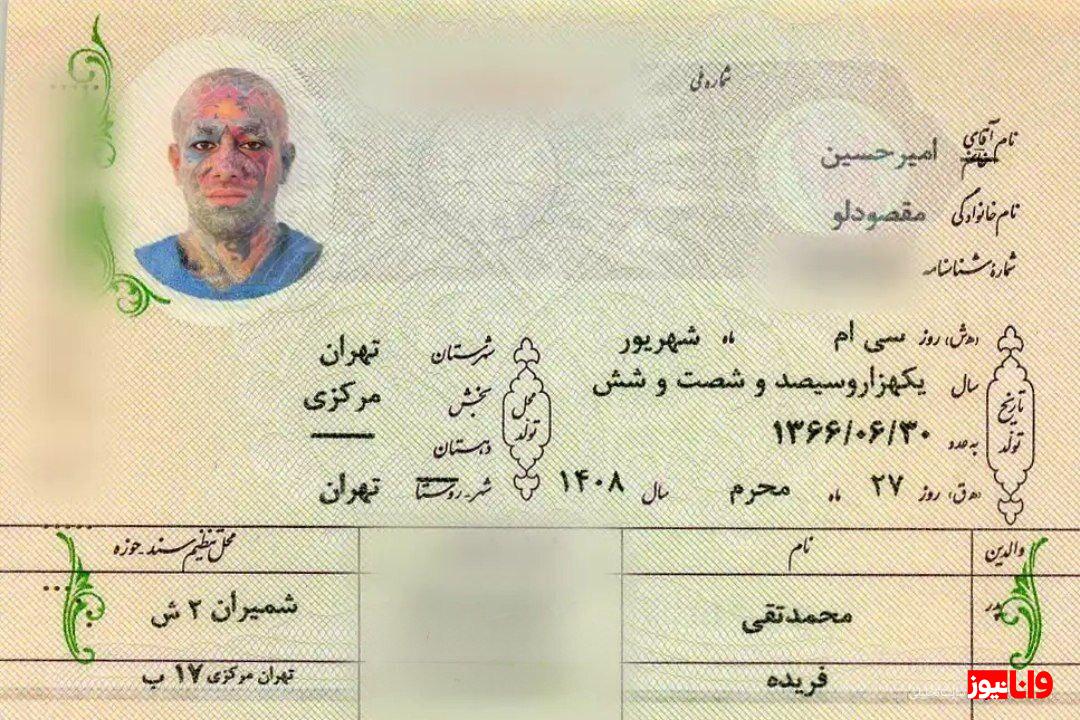 شماره ملی
نام آقای خانم امیرحسین
نام خانوادگی مقصودلو
شمارهٔ شناسنامه
تاریخ تولد
(ه‍.ش) روز سی ام ماه شهریور
سال یکهزاروسیصد و شصت و شش
به عدد ۱۳۶۶/۰۶/۳۰
(ه‍.ق) روز ۲۷ ماه محرم سال ۱۴۰۸
محل تولد
شهرستان تهران
بخش مرکزی
دهستان ——
شهر-روستا تهران
والدین نام محل تنظیم سند-حوزه
پدر محمدتقی شمیران ۲ ش
فریده تهران مرکزی ۱۷ ب
وانانیوز